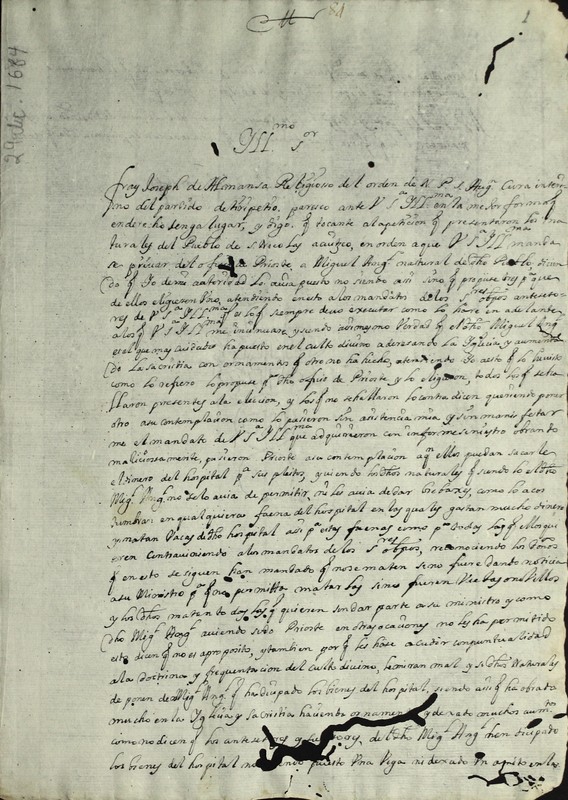 1
29 dic. 1684
Yll.mo S.or
fray Joseph de Almansa Religioso del orden de N. P. S. Aug.n Cura inter
ino del partido de paresco ante V S.a Yll.ma en la mejor forma q
en derecho lenga lugar, y digo, q tocante a la peticion q presentaron los na
turales del Pueblo de S. Nicolas en orden a q V S.a Yll.ma manda
se privar del oficio Prioste a Miguel Ang.l natural de dho Pueblo, dicien
do q Yo de mi autoridad lo auia puesto no siendo asi sino q propuse tres p.a que
de ellos eligiesen Uno, atendiendo en esto a los mandatos de los S.res obpos antecesso
res de V S.a Yll.ma q siempre devo executar como lo hare en adelante
a los q V S.a Yll.ma me insinuare, y siendo assimesmo Verdad q el dho Miguel Ang.l
es el que mas cuidado ha puesto en el culto divino aderesando la Yglesia y aumentan
do la sacristia con ornamentos q otro no ha hecho, atendiendo Yo a esto q
como lo refiero lo propuse p.a dho oficio de Prioste y lo eligieron, todos los q se ha
llaron presentes a la eleccion, y los q no se hallaron lo contradicen queriendo poner
otro a su contemplacion como lo pusieron sin asistencia mia y sin manifestar
me el mandato de V S.a Yll.ma que adquirieron con informe siniestro obrando
maliciosamente, pusieron Prioste a su contemplacion a q.n ellos puedan sacarle
el dinero del hospital p.a sus pleitos, y viendo los dhos naturales q siendo lo el dho
Mig.l Ang.l no se lo auia de permitir, ni les auia de dar como lo acos
tumbran en qualquiera faena del hospital en los quales gastan mucho dinero
y matan Vacas de dho hospital asi p.a estas faenas como p.a todas las q ellos qui
eren contraviniendo a los mandatos de los S.res obpos, reconociendo los daños
q en esto se siguen han mandado q no se maten sino fuere dando noticia
a su Ministro p.a q no permitta matar las sino fueren Viejas o novillos
y los dhos maten todos los q quieren sin dar parte a su ministro y como
dho Mig.l Ang.l auiendo sido Prioste en otras ocasiones no les ha permitido
esto dicen q no es aproposito, y tambien por q les hase acudir con puntualidad
a la doctrina y frequentacion del culto divino, le miran mal y si dhos Naturales
de ponen de Mig.l Ang.l q ha dicipado los bienes del hospital, siendo assi q ha obrado
mucho en la Yglesia y Sacristia haciendo ornamentos y dexado muchos aum.tos
como no dicen q los antesesores y de dho Mig.l Ang.l han dicipado
los bienes del hospital no puesto Una Viga ni dexado